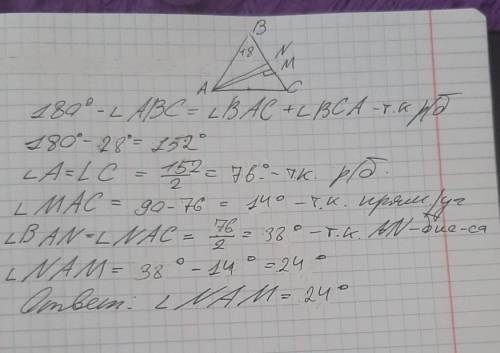 B
18
N
M
A
C
180° - ∠ABC = ∠BAC + ∠BCA - т.к. р/б
180° - 28° = 152°
∠A = ∠C = 152/2 = 76° - т.к. р/б.
∠MAC = 90 - 76 = 14° - т.к. прям/уг
∠BAN = ∠NAC = 76/2 = 38° - т.к. AN - бис-са
∠NAM = 38° - 14° = 24°
Ответ: ∠NAM = 24°